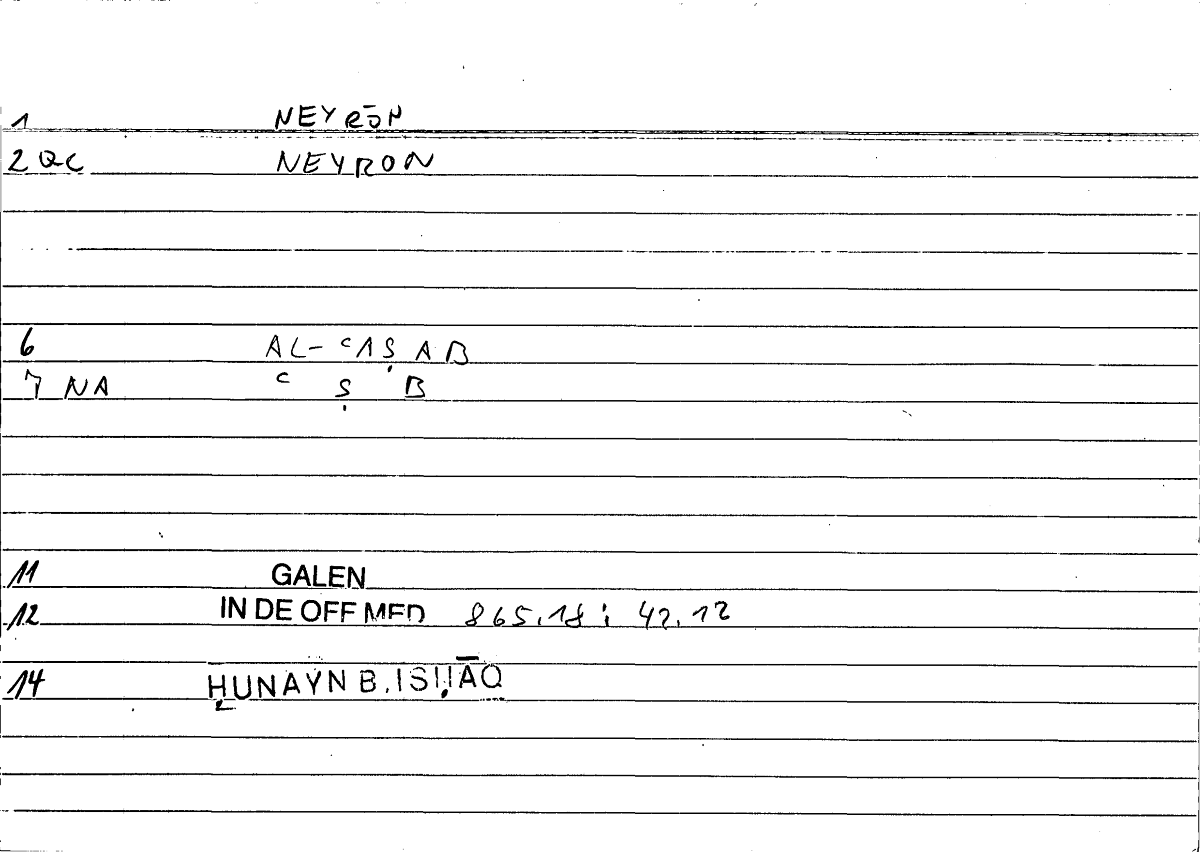 1 NEYRŌN
2 QC NEYRON
6 AL-ʿAṢAB
7 NA ʿ Ṣ B
11 GALEN
12 IN DE OFF MED 865.18 ; 42.12
14 ḤUNAYN B. ISḤĀQ